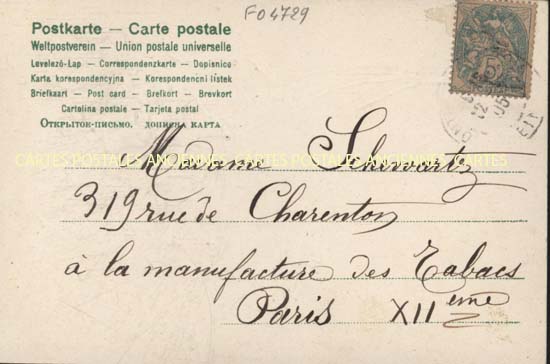 FO4729
Postkarte — Carte postale
Weltpostverein — Union postale universelle
Levelező-Lap — Correspondenzkarte — Dopisnica
Karta korespondencyjna — Korespondenční lístek
Briefkaart — Post card — Brefkort — Brevkort
Cartolina postale — Tarjeta postal
Открытое письмо. дописна карта
CARTES POSTALES ANCIENNES CARTES POSTALES ANCIENNES CARTES
Madame Schwartz
319 rue de Charenton
à la manufacture des Tabacs
Paris XIIème
5
05